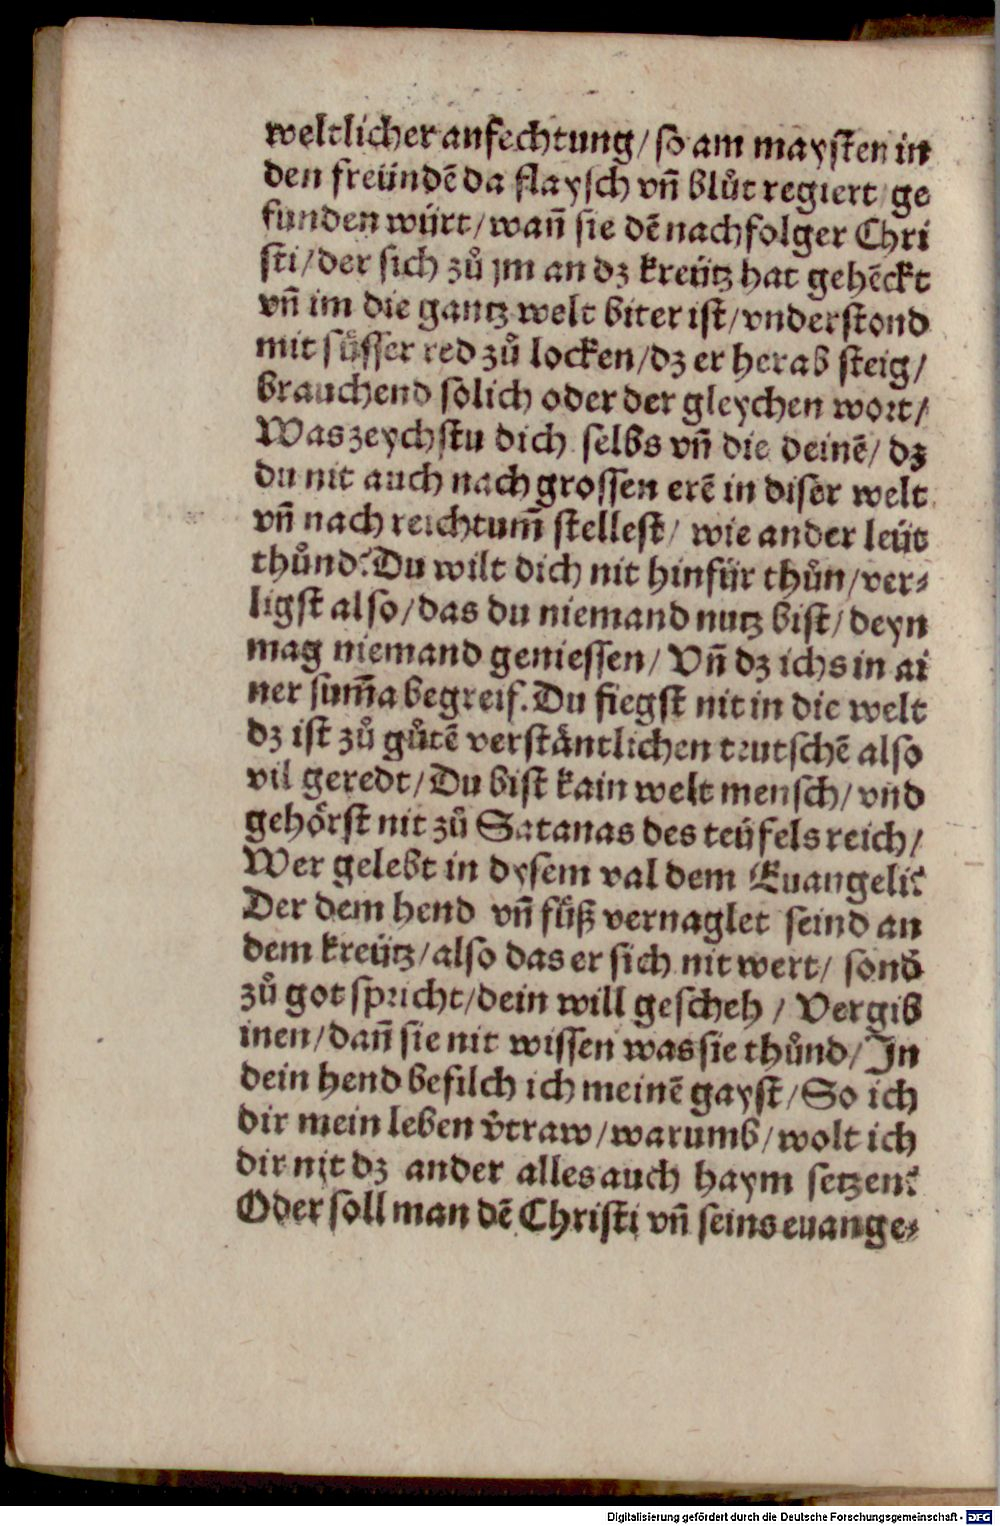 weltlicher anfechtung/ so am maysten in
den freündē da flaysch vñ blůt regiert/ ge
funden würt/ wañ sie dē nachfolger Chri
sti/ der sich zů jm an dz kreütz hat gehēckt
vñ im die gantz welt biter ist/ vnderstond
mit süsser red zů locken/ dz er herab steig/
brauchend solich oder der gleychen wort/
Was zeychstu dich selbs vñ die deinē/ dz
du nit auch nach grossen erē in diser welt
vñ nach reichtum̃ stellest/ wie ander leüt
thůnd? Du wilt dich nit hinfür thůn/ ver⸗
ligst also/ das du niemand nutz bist/ deyn
mag niemand geniessen/ Vñ dz ichs in ai
ner sum̃a begreif. Du fiegst nit in die welt
dz ist zů gůtē verstäntlichen teutschē also
vil geredt/ Du bist kain welt mensch/ vnd
gehörst nit zů Satanas des teüfels reich/
Wer gelebt in dysem val dem Euangeli?
Der dem hend vñ füß vernaglet seind an
dem kreütz/ also das er sich nit wert/ sond̕
zů got spricht/ dein will gescheh/ Vergib
inen/ dañ sie nit wissen was sie thůnd/ In
dein hend befilch ich meinē gayst/ So ich
dir mein leben v̕traw/ warumb/ wolt ich
dir nit dz ander alles auch haym setzen?
Oder soll man dē Christi vñ seins euange⸗
Digitalisierung gefördert durch die Deutsche Forschungsgemeinschaft - DFG